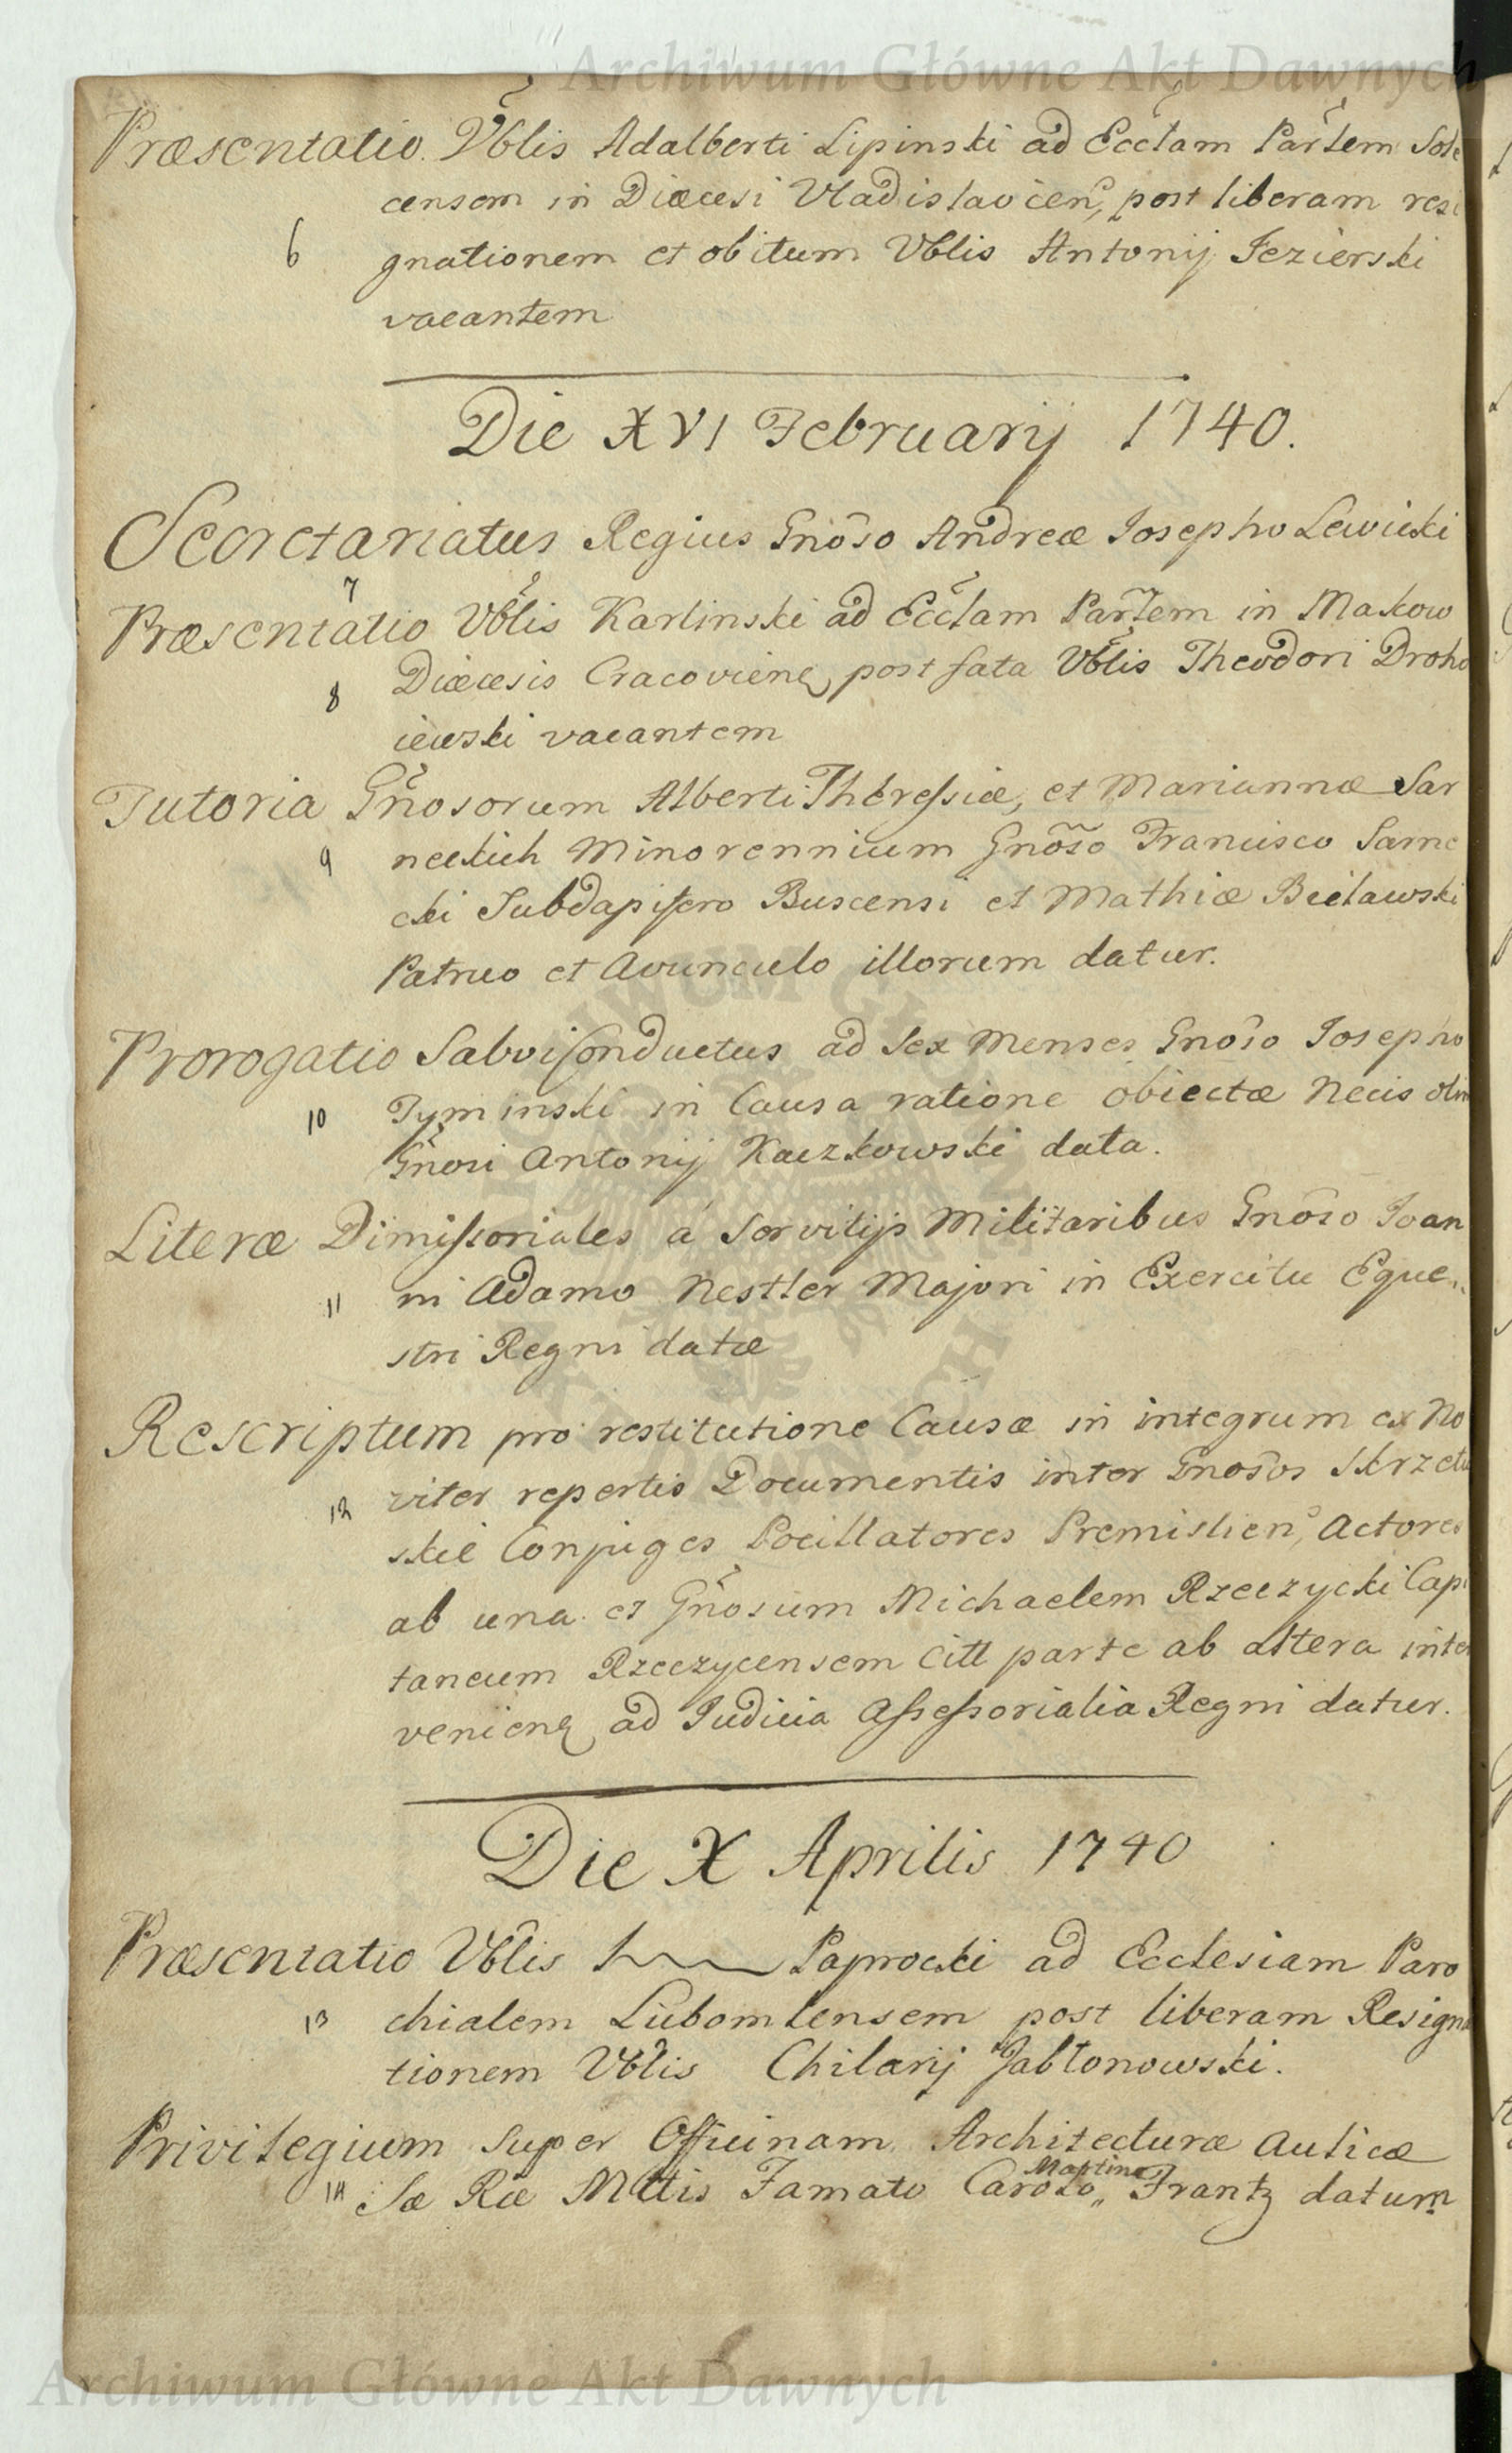 Archiwum Główne Akt Dawnych
Præsentatio Vblis Adalberti Lipinski ad Ecclam Partem Sole
censem in Diæcesi Vladislavicen, post liberam resi
6 gnationem et obitum Vblis Antonij Jezierski
vacantem
Die XVI Februarij 1740.
Secretariatus Regius Gnoso Andreæ Josepho Lewicki
7
Præsentatio Vblis Karlinski ad Ecclam Partem in Makow
8 Diæcesis Cracovienq post fata Vblis Theodori Droho
iewski vacantem
Tutoria Gnosorum Alberti Theressiæ, et Mariannæ Sar
9 neckich Minorennium Gnoso Francisco Sarne
cki Subdapifero Buscensi et Mathiæ Bielawski
Patruo et Avunculo illorum datur.
Prorogatio Salviconductus ad Sex Menses Gnoso Josepho
10 Tyminski in Causa ratione obiectæ Necis olim
Gnosi Antonij Kaczkowski data.
Literæ Dimissoriales á Servitijs Militaribus Gnoso Joan
11 ni Adamo Nestler Majori in Exercitu Eque
stri Regni datæ
Rescriptum pro restitutione Causæ in integrum ex No
12 viter repertis Documentis inter Gnosos Skrzetu
skie Conjuges Pocillatores Premislien, Actores
ab una et Gnosum Michaelem Rzeczycki Capi
taneum Rzeczycensem Citt parte ab altera inter
venienq ad Judicia Assessorialia Regni datur.
Die X Aprilis 1740
Præsentatio Vblis Paprocki ad Ecclesiam Paro
13 chialem Lubomlensem post liberam Resigna
tionem Vblis Chilarij Jabłonowski.
Privilegium super Officinam Architecturæ Aulicæ
Martino
14 Sæ Ræ Mttis Famato Carolo„ Frantz datum
Archiwum Główne Akt Dawnych